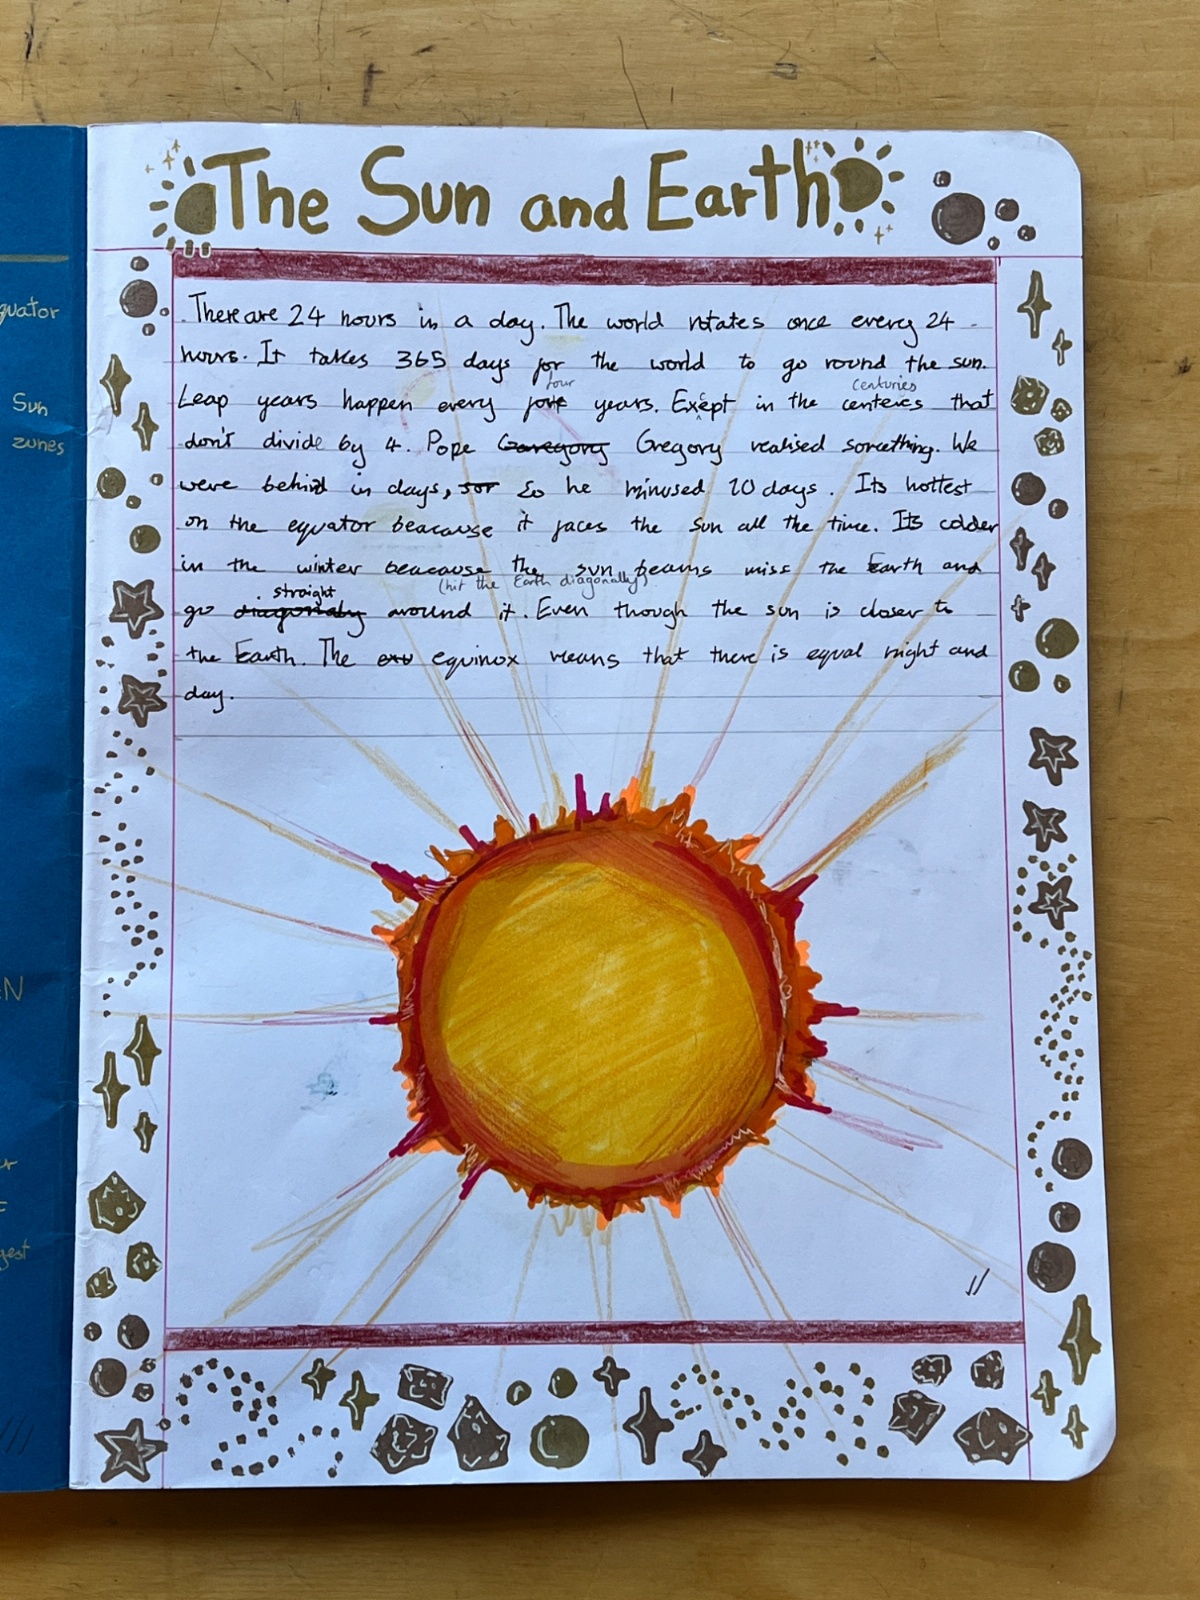 The Sun and Earth
There are 24 hours in a day. The world rotates once every 24
hours. It takes 365 days for the world to go round the sun.
four
centuries
Leap years happen every fore years. Exept in the centeries that
don't divide by 4. Pope Garegory Gregory realised somcething. We
were behind in days, sor So he minused 10 days. Its hottest
on the equator beacause it faces the sun all the time. Its colder
in the winter beacause the sun beams miss the Earth and
(hit the Earth diagonally)
straight
go diagonaly around it. Even though the sun is closer to
the Earth. The equinox means that there is equal night and
day.
quator
Sun
zones
EN
gest